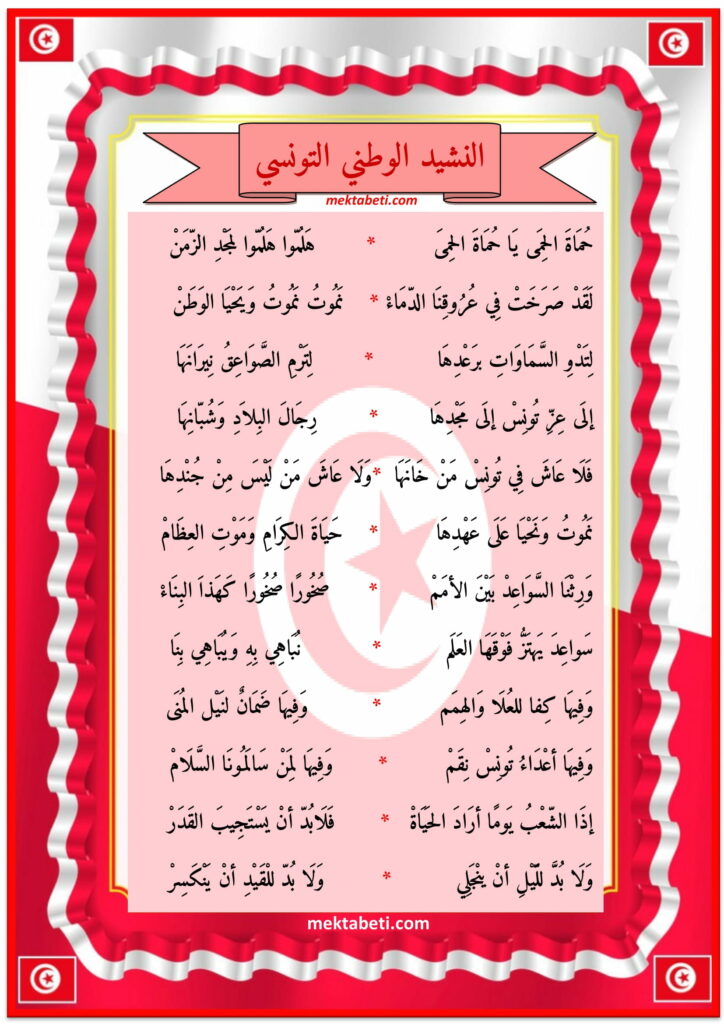 النشيد الوطني التونسي
mektabeti.com
حُمَاةَ الحِمَى يَا حُمَاةَ الحِمَى * هَلُمّوا هَلُمّوا لمَجْدِ الزّمَنْ
لَقَدْ صَرَخَتْ فِي عُرُوقِنَا الدّمَاءْ * نَمُوتُ نَمُوتُ وَيَحْيَا الوَطَنْ
لِتَدْوِ السَّمَاوَاتِ بِرَعْدِهَا * لِتَرْمِ الصَّوَاعِقُ نِيرَانَهَا
إلَى عِزِّ تُونِسْ إلَى مَجْدِهَا * رِجَالَ البِلاَدِ وَشُبّانِهَا
فَلَا عَاشَ فِي تُونِسْ مَنْ خَانَهَا * وَلَا عَاشَ مَنْ لَيْسَ مِنْ جُنْدِهَا
نَمُوتُ وَنَحْيَا عَلَى عَهْدِهَا * حَيَاةَ الكِرَامِ وَمَوْتِ العِظَامْ
وَرِثْنَا السَّوَاعِدْ بَيْنَ الأمَمْ * صُخُورًا صُخُورًا كَهَذاَ البِنَاءْ
سَواعِدَ يَهتَزُّ فَوْقَهَا العَلَم * نُبَاهِي بِهِ وَيُبَاهِي بِنَا
وَفِيهَا كِفا للعُلَا وَالهِمَم * وَفِيهَا ضَمَانٌ لنَيْل المُنَى
وَفِيهَا أعْدَاءُ تُونِسْ نِقَمْ * وَفِيهَا لِمَنْ سَالَمُونَا السَّلَامْ
إذَا الشّعْبُ يَومًا أرَادَ الحَيَاةْ * فَلَابُدّ أنْ يَسْتَجِيبَ القَدَرْ
وَلَا بُدَّ للّيْلِ أنْ يَنْجَلِي * وَلَا بُدّ للْقَيْدِ أنْ يَنْكَسِرْ
mektabeti.com